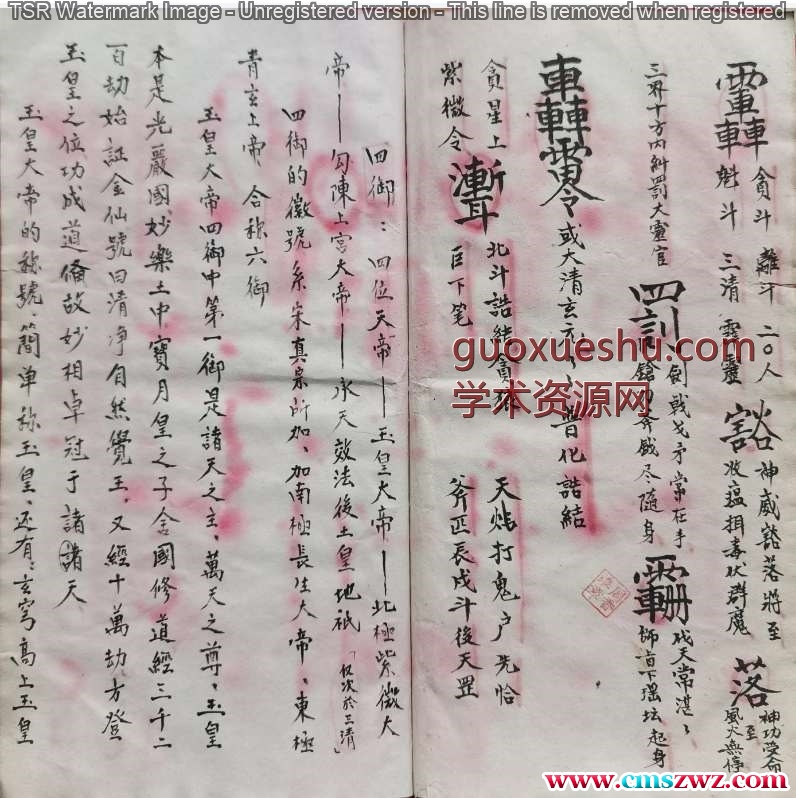 TSR Watermark Image - Unregistered version - This line is removed when registered
貪斗 離斗 二〇人
魁斗 三清
豁 神威豁落將至
收瘟捐毒伏群魔
落 神功受命至
風火無停
三界十方內糾四罰大靈官
四罰 劍戟戈矛常在手
盡隨身
代天常湛
下瑤坛起身
或大清玄 普化誥結
貪星上
紫微令
北斗誥結貪
巨下筆
天 打鬼户先
斧 辰戌斗後天罡
四御：四位天帝——玉皇大帝——北極紫微大
帝——勾陳上宮大帝——承天效法後土皇地祇「仅次於三清」
四御的徽號系宋真宗所加、加南極長生大帝、東極
青玄上帝 合称六御
玉皇大帝四御中第一御是諸天之主、萬天之尊、玉皇
本是光嚴國妙樂土中寶月皇之子舍國修道經三千二
百劫始証金仙號曰清净自然覺王、又經十萬劫方登
玉皇之位功成道備故妙相卓冠于諸諸天
玉皇大帝的称號、簡单称玉皇、还有：玄穹高上玉皇
guoxueshu.com
学术资源网
www.cmszwz.com